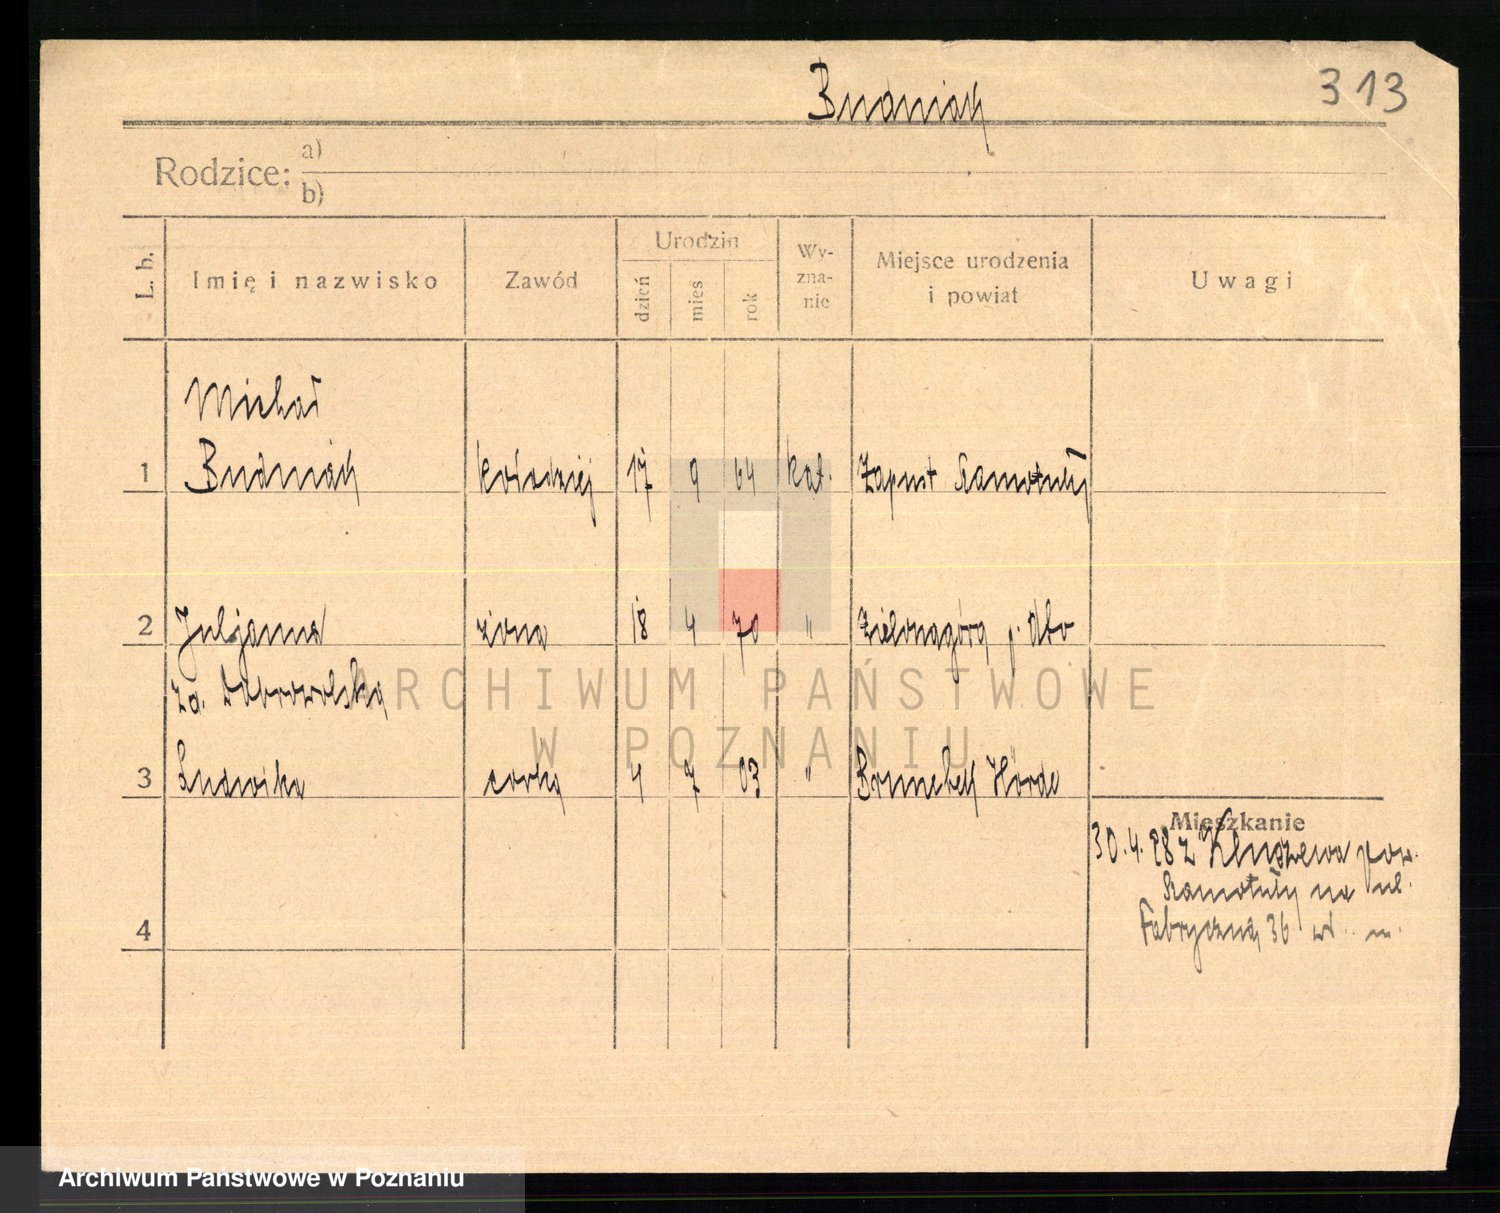 Budniak
313
Rodzice: a)
b)
L. b.
Imię i nazwisko
Zawód
Urodzin
dzień
mies
rok
Wy-
zna-
nie
Miejsce urodzenia
i powiat
Uwagi
Michał
1 Budniak kołodziej 17 9 64 kat. Zapust Szamotuły
2 Juljanna żona 18 4 70 " Zielonagóra p. Obo
zd. Dobrowolska
3 Ludwika corka 4 7 03 " Hörde
Mieszkanie
30.4.28 z Kluszewa pow.
Szamotuły na ul.
Fabryczną 36 m.
4
ARCHIWUM PAŃSTWOWE
W POZNANIU
Archiwum Państwowe w Poznaniu